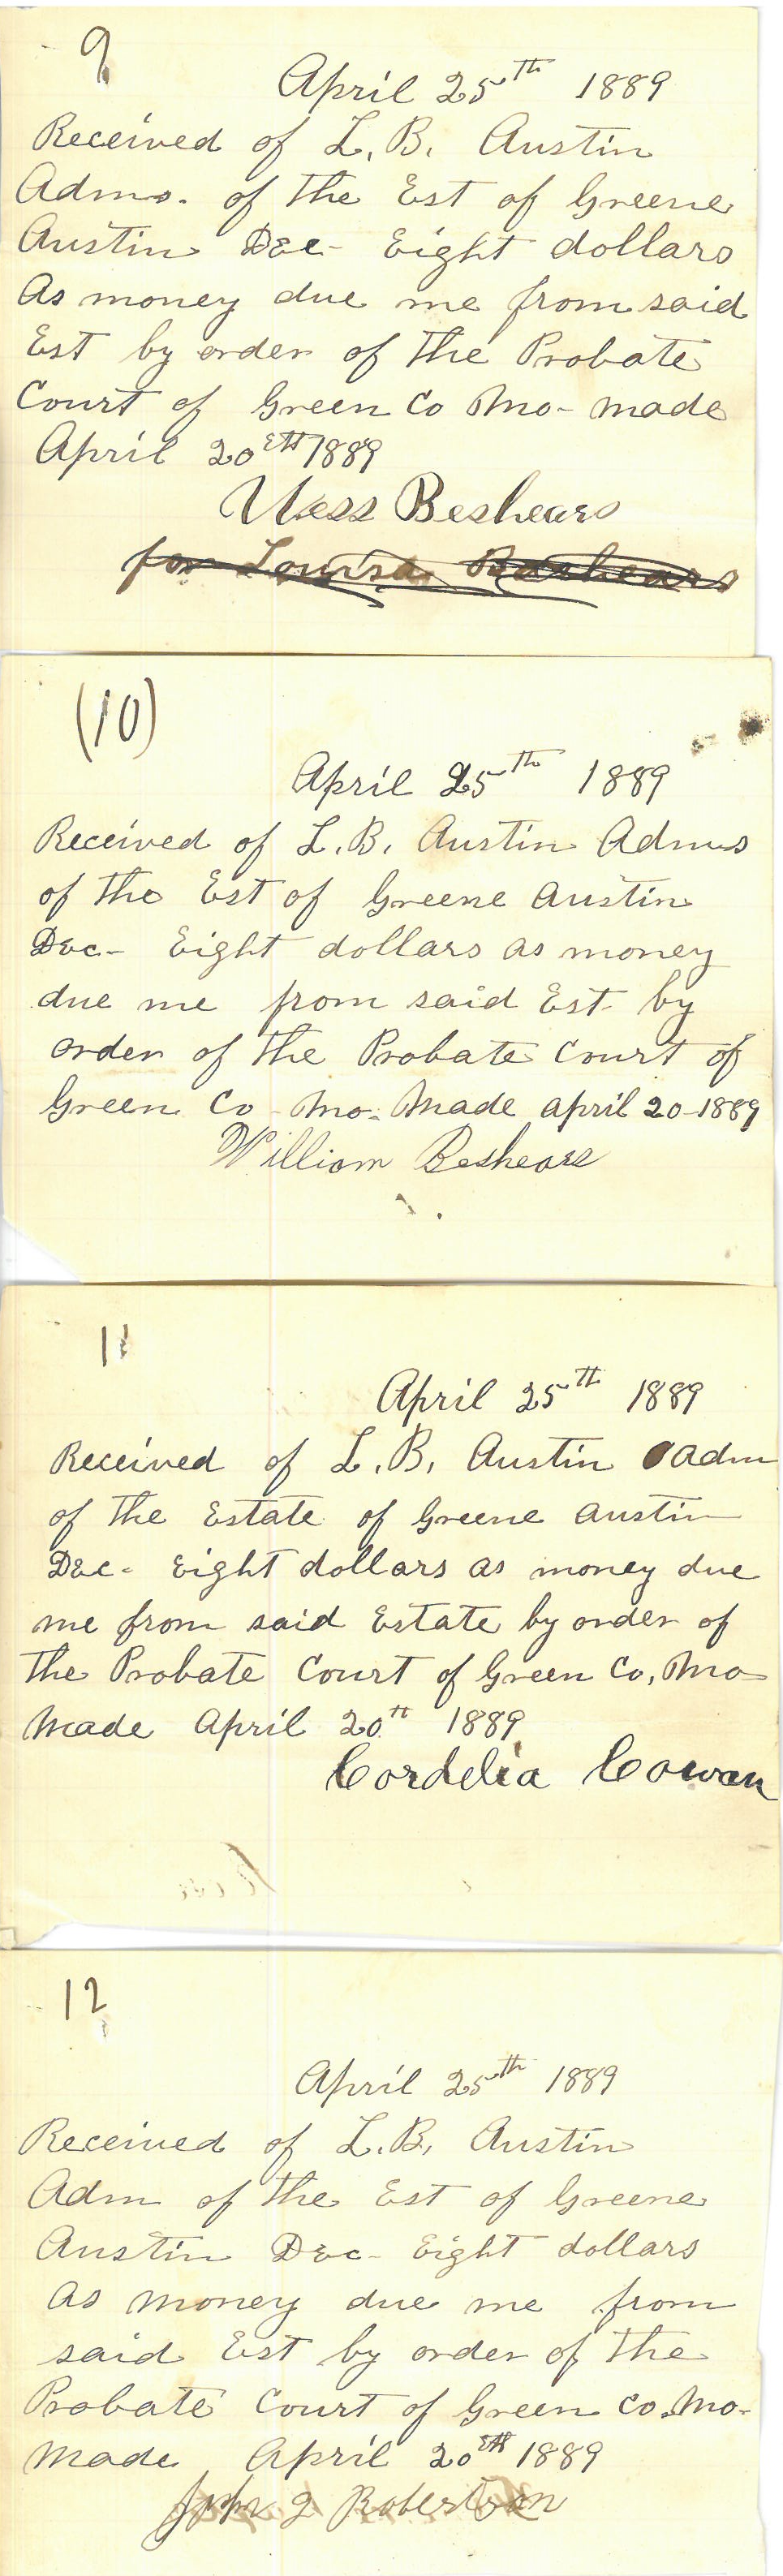 9
April 25th 1889
Received of L. B. Austin
Admo. of the Est of Greene
Austin Dec- Eight dollars
As money due me from said
Est by order of the Probate
Court of Green Co Mo- made
April 20eth 1889
Beshears
for Louisa Beshears
(10)
April 25th 1889
Received of L. B. Austin Adms
of the Est of Greene Austin
Dec- Eight dollars as money
due me from said Est- by
order of the Probate Court of
Green Co - Mo. Made april 20-1889
William Beshears
11
April 25th 1889
Received of L. B. Austin adm
of the Estate of Greene Austin
Dec- Eight dollars as money due
me from said Estate by order of
the Probate Court of Green Co, Mo-
Made April 20th 1889
Cordelia Cowan
12
April 25th 1889
Received of L. B. Austin
Adm of the Est of Greene
Austin Dec- Eight dollars
As money due me from
said Est by order of the
Probate Court of Green Co. Mo-
Made April 20eth 1889
John J Robertson